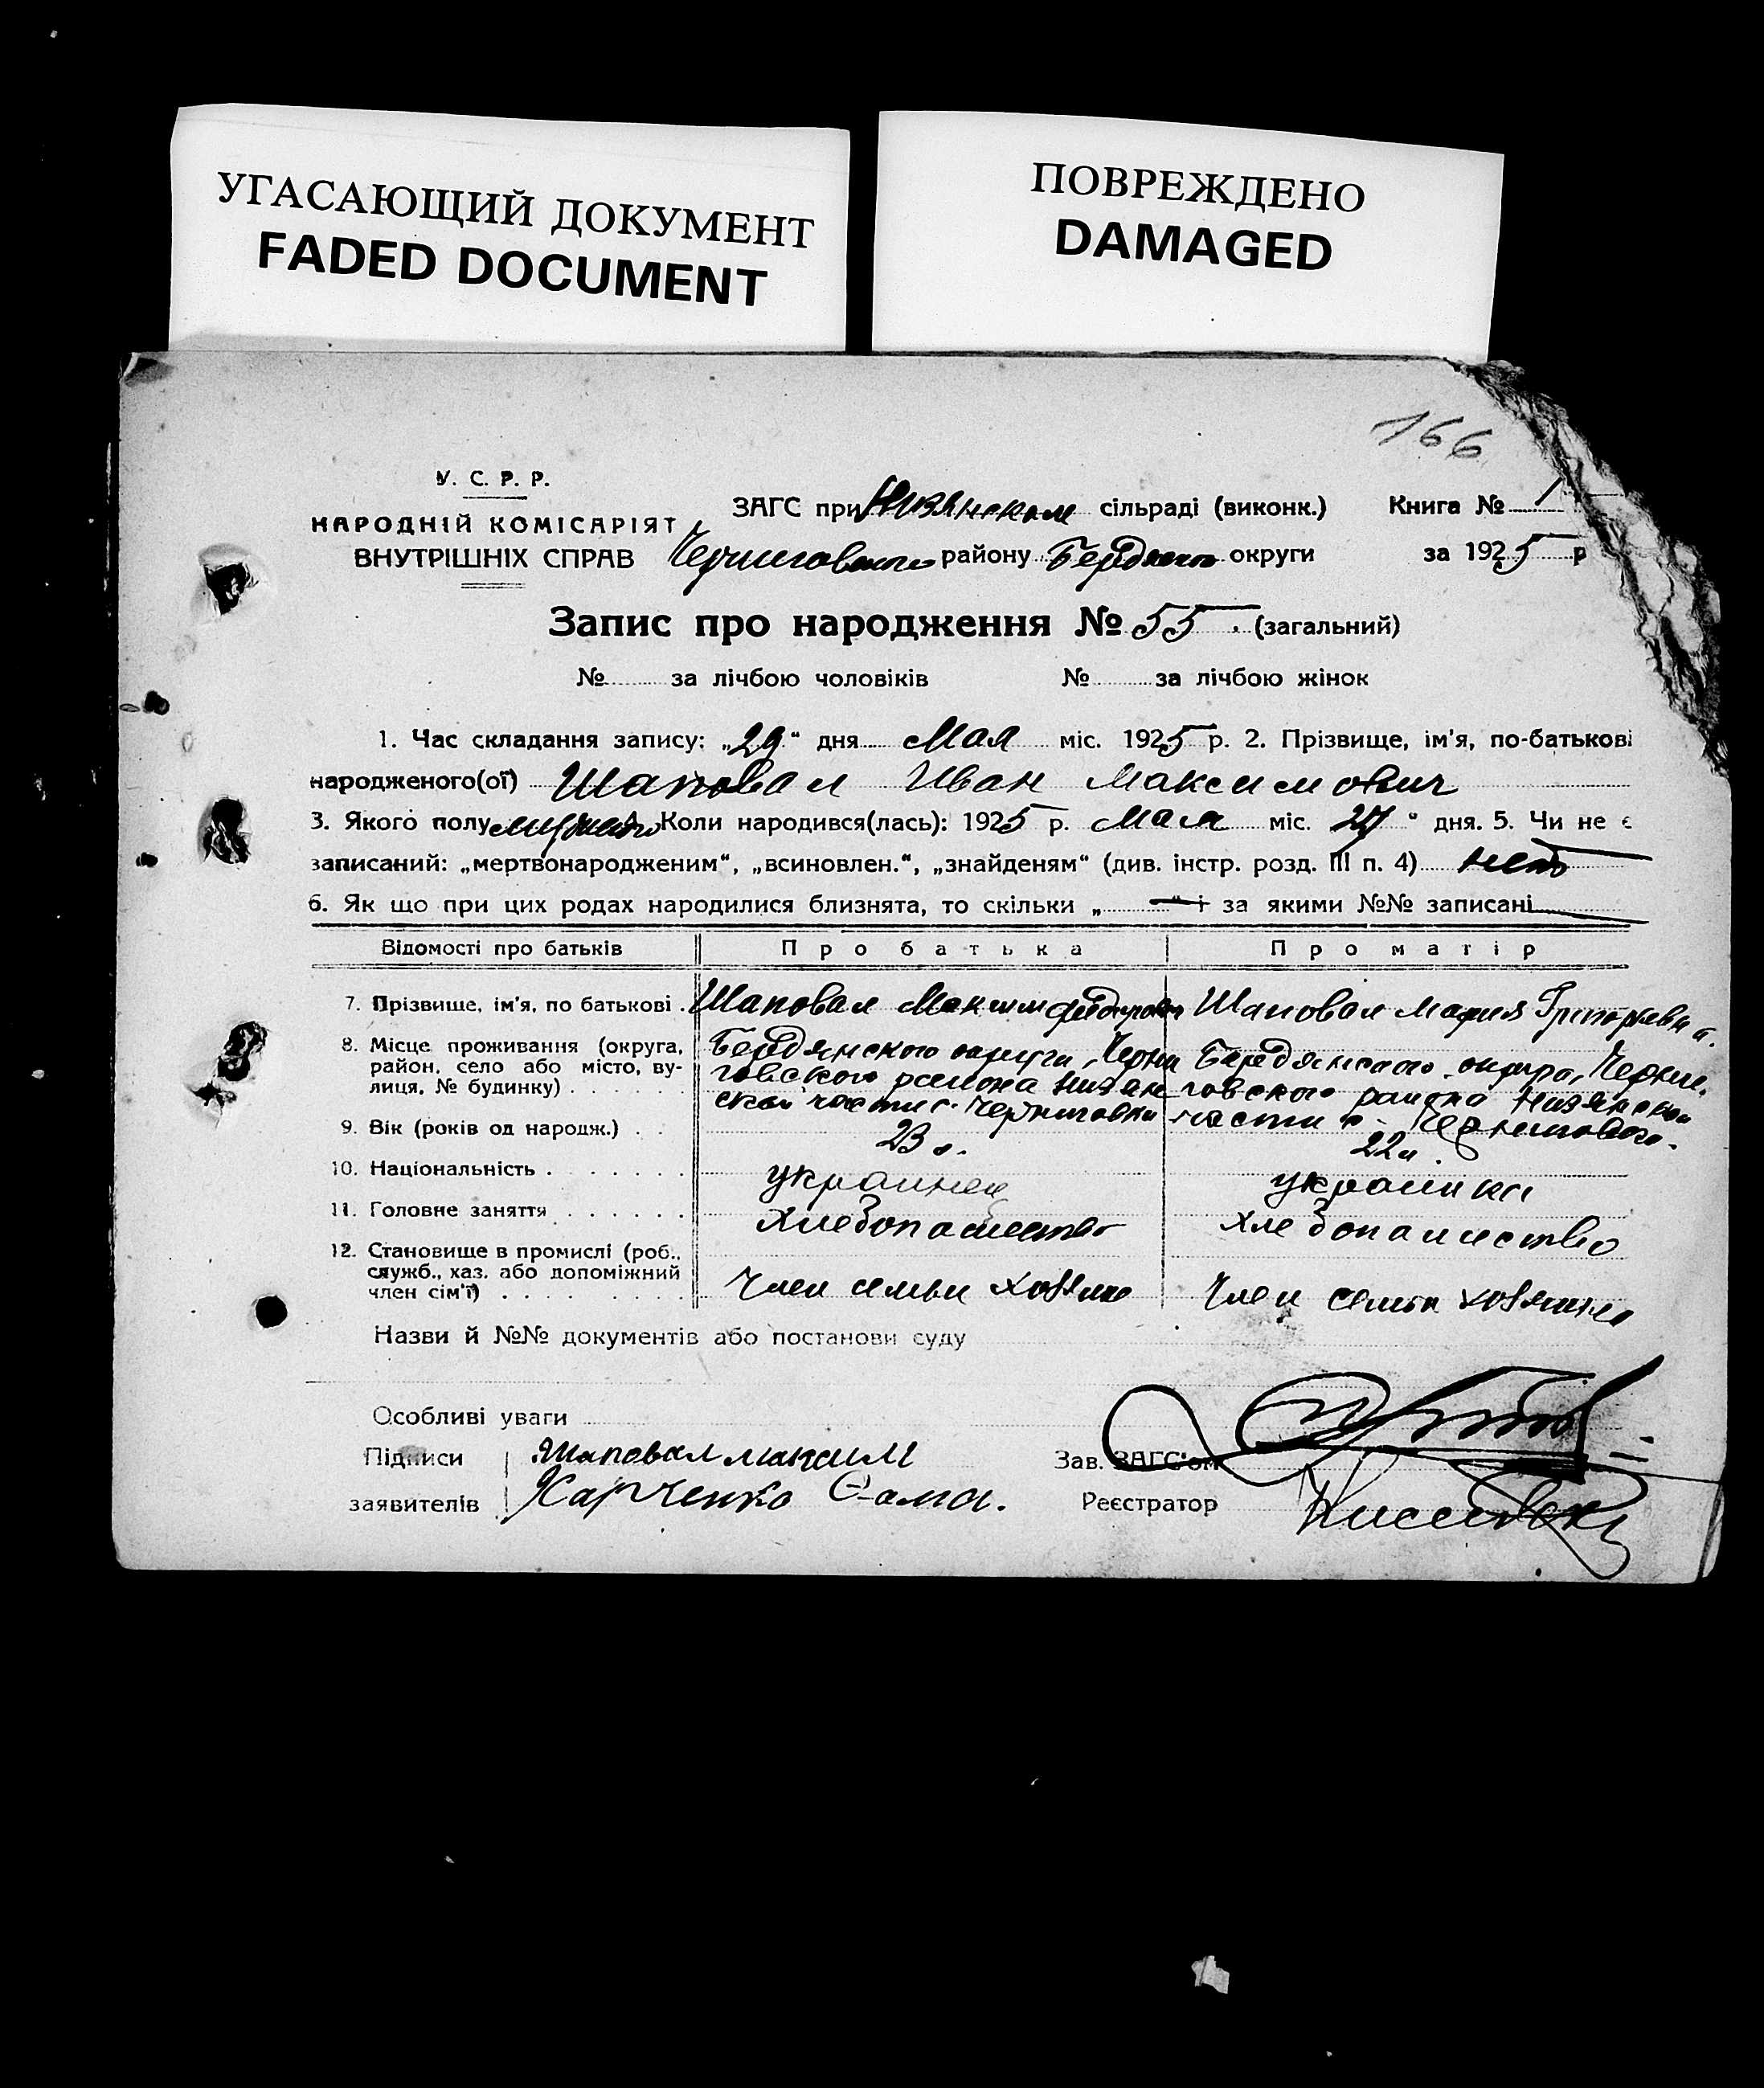 УГАСАЮЩИЙ ДОКУМЕНТ
FADED DOCUMENT
ПОВРЕЖДЕНО
DAMAGED
166
У. С. Р. Р.
НАРОДНІЙ КОМІСАРІЯТ
ВНУТРІШНІХ СПРАВ
ЗАГС при Низянском сільраді (виконк.) Книга № 1
Черниговского району Бердянск округи за 1925 р
Запис про народження № 55. (загальний)
№ за лічбою чоловіків № за лічбою жінок
1. Час складання запису: „29“ дня Мая міс. 1925 р. 2. Прізвище, ім'я, по-батькові
народженого(ої) Шаповал Иван Максимович
3. Якого полу мужского 4. Коли народився(лась): 1925 р. Мая міс. 27 “ дня. 5. Чи не є
записаний: „мертвонародженим“, „всиновлен.“, „знайденям“ (див. інстр. розд. III п. 4) нет
6. Як що при цих родах народилися близнята, то скільки „ — “ і за якими №№ записані
Відомості про батьків Про батька Про матір
7. Прізвище, ім'я, по батькові . Шаповал Максим Федорович Шаповал Мария Григорьевна.
8. Місце проживання (округа,
район, село або місто, ву-
лиця, № будинку) . . . . .
Бердянского округи, Черни
говского района Низян
ской части с. Черниговки
Бердянского округа, Черни-
говского района Низянской
части с.
9. Вік (років од народж.) . . 23 л. 22 л.
10. Національність . . . . . . . украинец украинка
11. Головне заняття . . . . . . хлебопашество хлебопашество
12. Становище в промислі (роб.,
служб., хаз. або допоміжний
член сім'ї) . . . . . . . . .
Член семьи хозяина Член семьи хозяина
Назви й №№ документів або постанови суду
Особливі уваги
Підписи Шаповал Максим Зав. ЗАГС'ом
заявителів Харченко Реєстратор